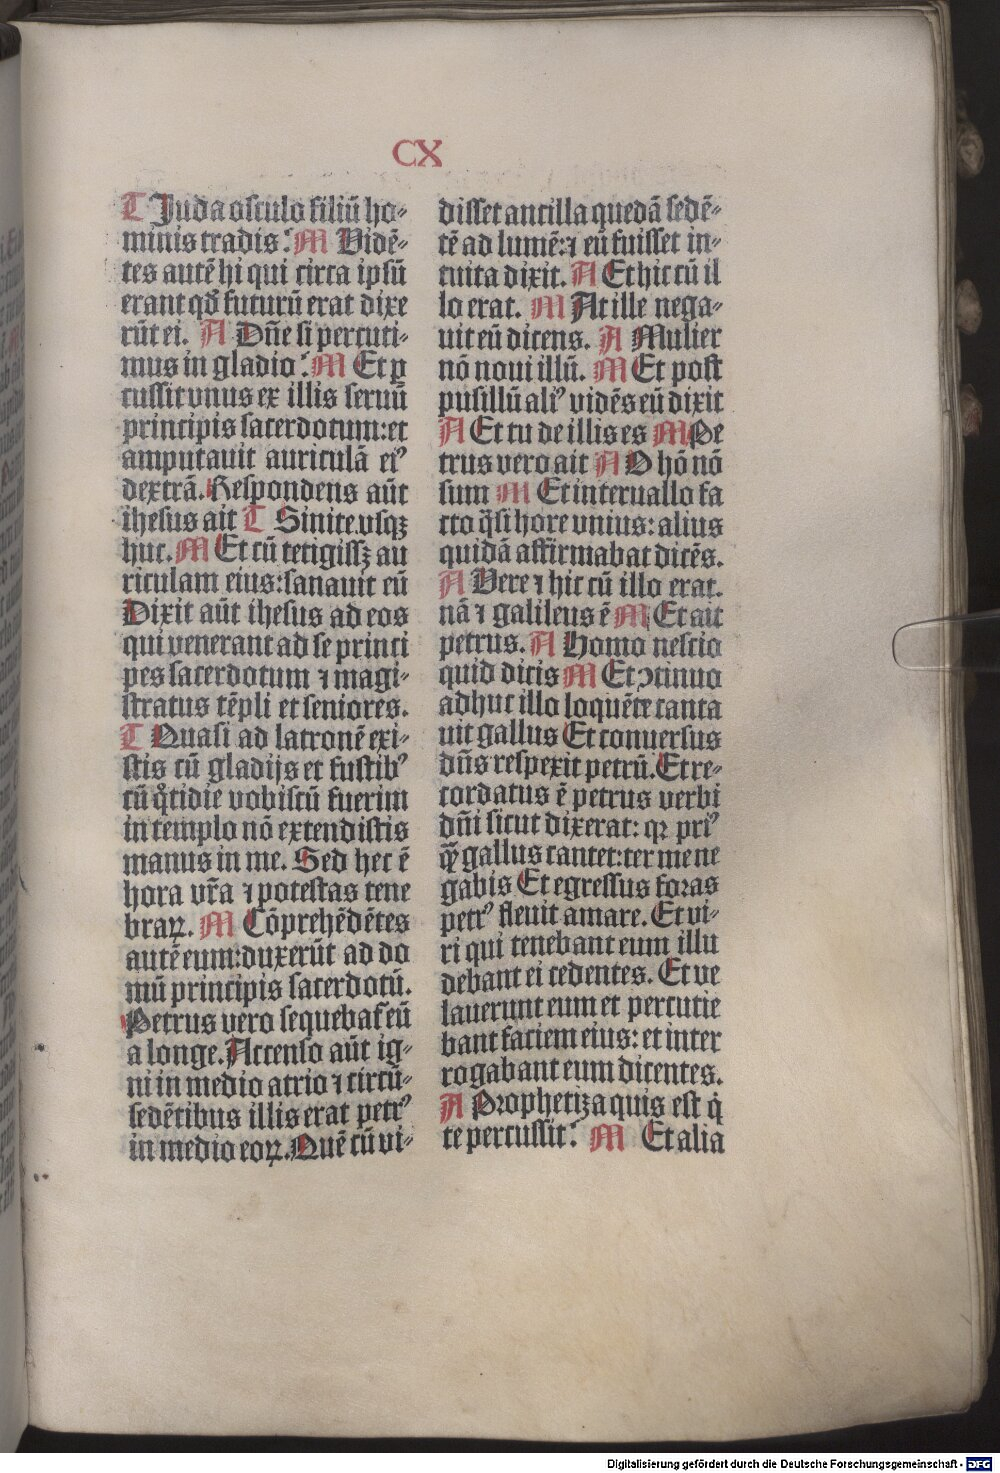 CX
T Juda osculo filiū ho-
minis tradis? M Vidē-
tes autē hi qui circa ipsū
erant qd̄ futurū erat dixe
rūt ei. A Dn̄e si percuti-
mus in gladio? M Et ꝑ
cussit vnus ex illis seruū
principis sacerdotum: et
amputauit auriculā eiꝰ
dextrā. Respondens aūt
ihesus ait T Sinite vsqꝫ
huc. M Et cū tetigissꝫ au
riculam eius: sanauit eū
Dixit aūt ihesus ad eos
qui venerant ad se princi
pes sacerdotum ⁊ magi-
stratus tēpli et seniores.
T Quasi ad latronē exi-
stis cū gladijs et fustibꝰ
cū qͦtidie vobiscū fuerim
in templo nō extendistis
manus in me. Sed hec ē
hora vr̄a ⁊ potestas tene
braꝝ. M Cōprehēdētes
autē eum: duxerūt ad do
mū principis sacerdotū.
Petrus vero sequebat᷑ eū
a longe. Accenso aūt ig-
ni in medio atrio ⁊ circū-
sedētibus illis erat petrꝰ
in medio eoꝝ. Quē cū vi-
disset ancilla quedā sedē-
tē ad lumē: ⁊ eū fuisset in-
tuita dixit. A Et hic cū il
lo erat. M At ille nega-
uit eū dicens. A Mulier
nō noui illū. M Et post
pusillū aliꝰ vidēs eū dixit
A Et tu de illis es M Pe
trus vero ait A O hō nō
sum M Et interuallo fa
cto q̄si hore vnius: alius
quidā affirmabat dicēs.
A Vere ⁊ hic cū illo erat.
nā ⁊ galileus ē M Et ait
petrus. A Homo nescio
quid dicis M Et ↄtinuo
adhuc illo loquēte canta
uit gallus Et conuersus
dn̄s respexit petrū. Et re-
cordatus ē petrus verbi
dn̄i sicut dixerat: qꝛ priꝰ
qͣ̄ gallus cantet: ter me ne
gabis Et egressus foras
petrꝰ fleuit amare. Et vi-
ri qui tenebant eum illu
debant ei cedentes. Et ve
lauerunt eum et percutie
bant faciem eius: et inter
rogabant eum dicentes.
A Prophetiza quis est qͥ
te percussit? M Et alia
Digitalisierung gefördert durch die Deutsche Forschungsgemeinschaft - DFG